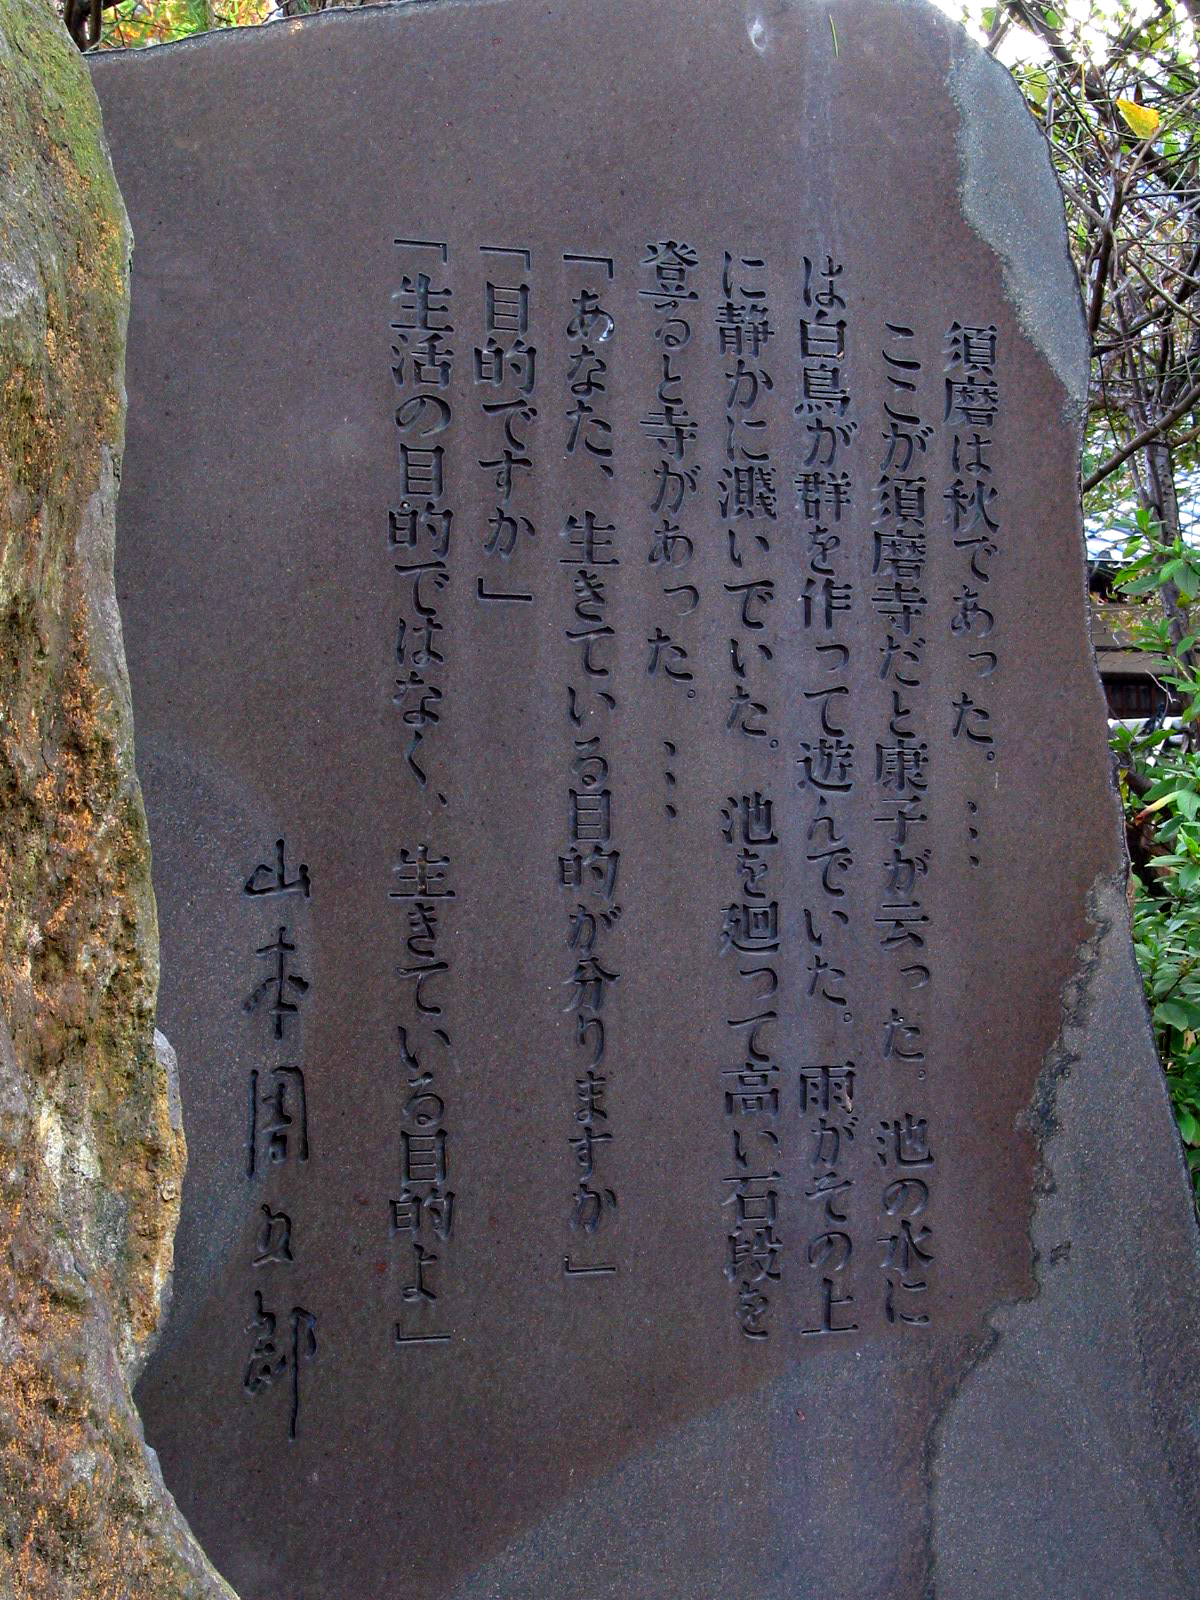 須磨は秋であった。…
ここが須磨寺だと康子が云った。池の水に
は白鳥が群を作って遊んでいた。雨がその上
に静かに濺いでいた。池を廻って高い石段を
登ると寺があった。…
「あなた、生きている目的が分りますか」
「目的ですか」
「生活の目的ではなく、生きている目的よ」
山本周五郎